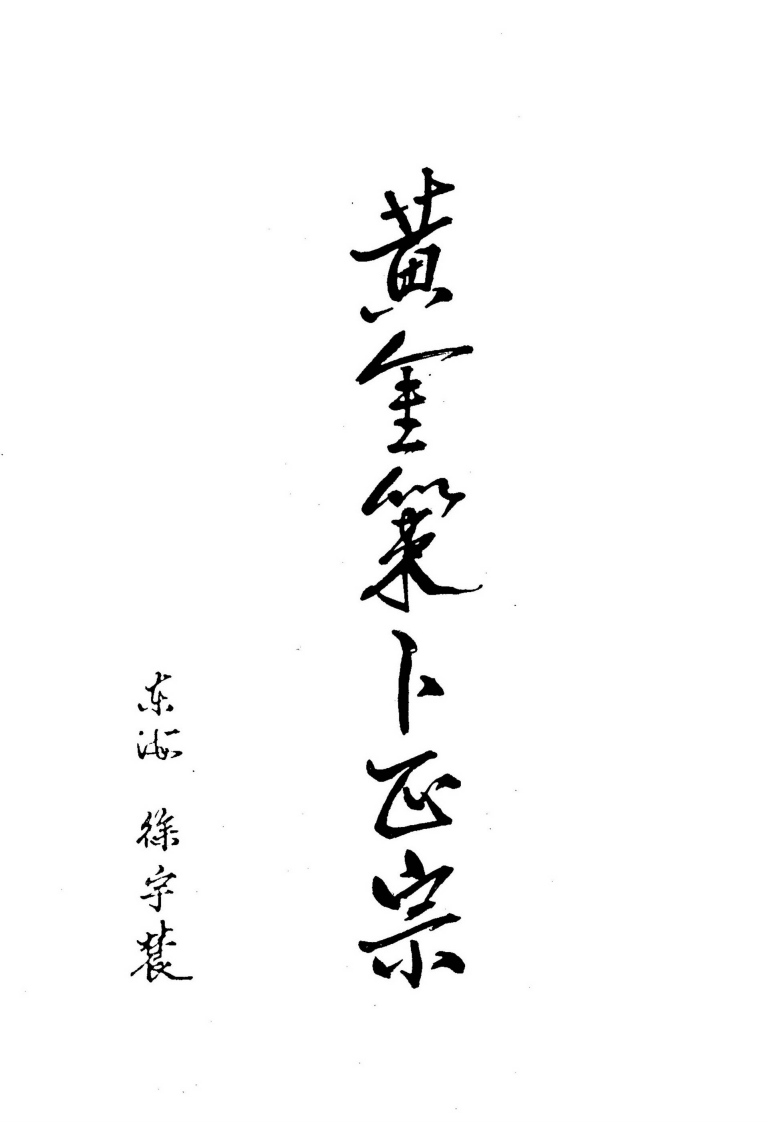 黄金策卜正宗
东海 徐宇辳